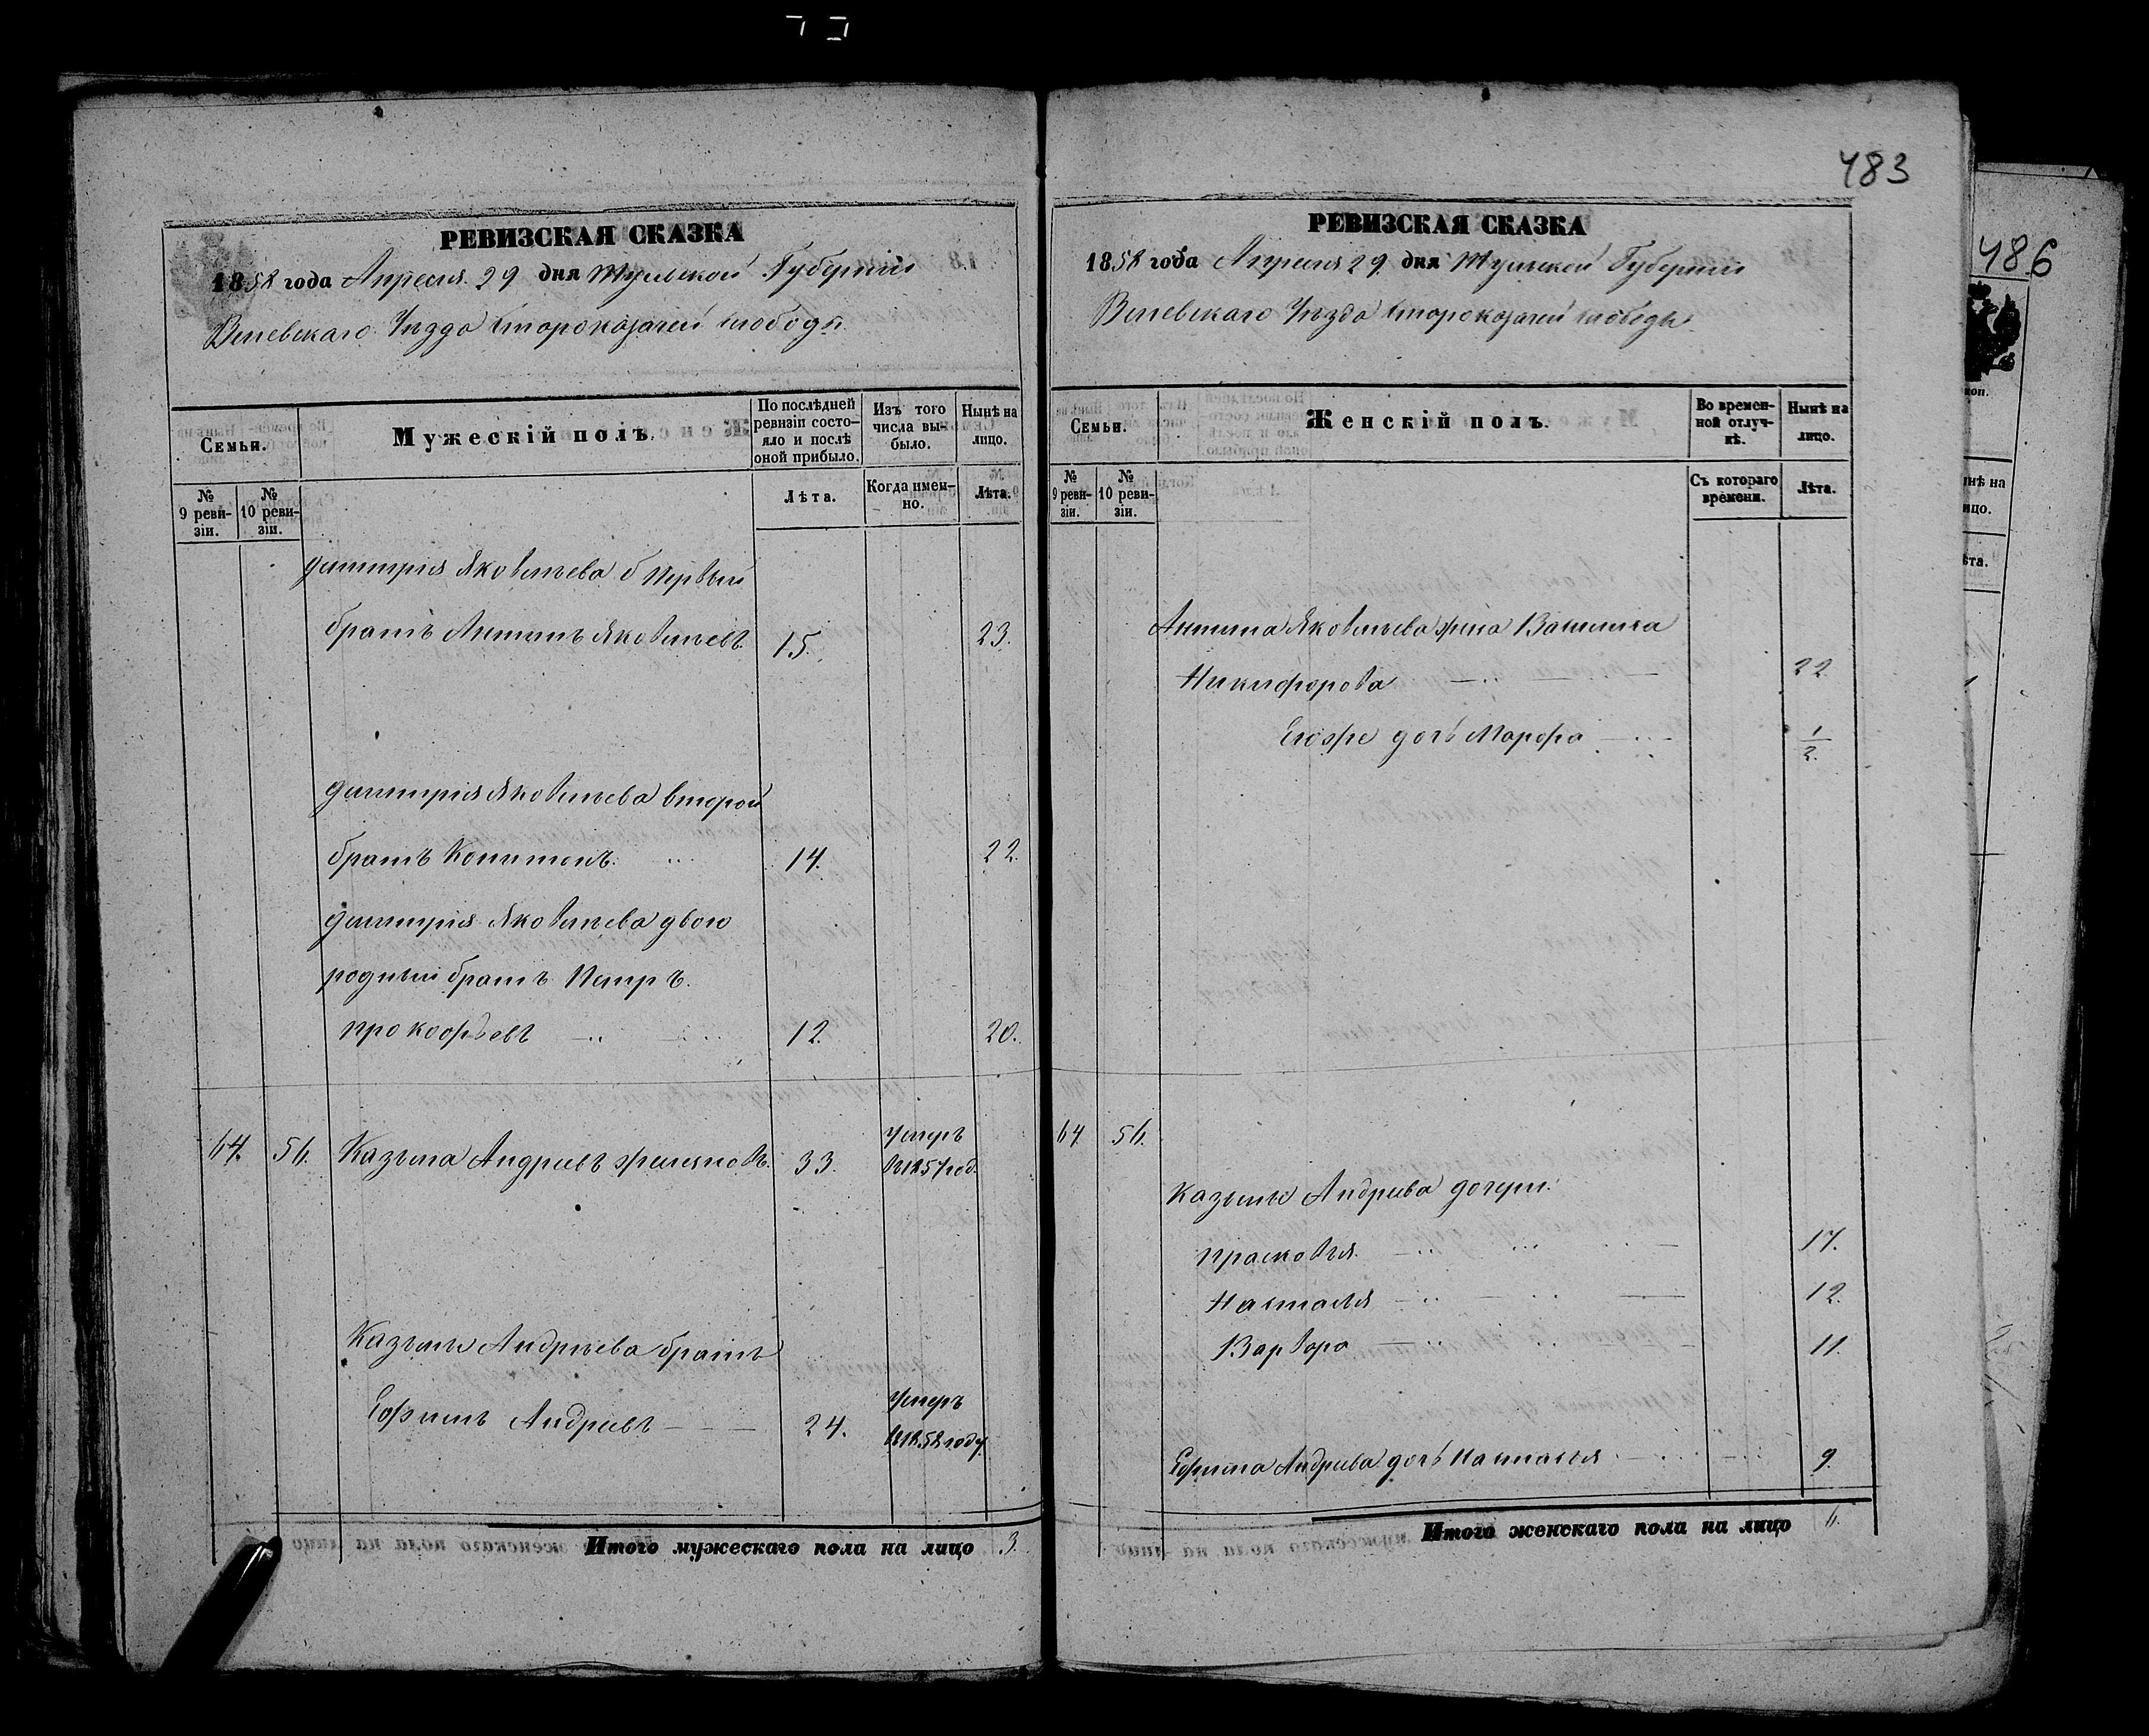 483
РЕВИЗСКАЯ СКАЗКА
1858 года Апреля 29 дня Тульской Губернии
Веневскаго Уезда Сторокозачей слободы
Семьи.
Мужескій полъ.
По послѣдней ревизіи состояло и послѣ оной прибыло.
Изъ того числа выбыло.
Нынѣ на лицо.
№ 9 ревизіи.
№ 10 ревизіи.
Лѣта.
Когда именно.
Лѣта.
Димитрия Яковлева 1 первый
братъ Антипъ Яковлевъ. 15. 23.
Димитрия Яковлева второй
братъ Капитонъ. 14. 22.
Димитрия Яковлева двою
родный братъ Петръ.
Прокофьевъ 12. 20.
64. 56. Казьма Андреевъ 33. умеръ
в 1857 год.
Казьмы Андреева братъ
Ефимъ Андреевъ 24. Умеръ
в 1858 году.
Итого мужескаго пола на лицо 3.
РЕВИЗСКАЯ СКАЗКА
1858 года Апреля 29 дня Тульской Губернии
Веневскаго Уезда Сторокозачей слободы
Семьи.
Женскій полъ.
Во временной отлучкѣ.
Нынѣ на лицо.
№ 9 ревизіи.
№ 10 ревизіи.
Съ котораго времени.
Лѣта.
Антипа Яковлева жена
Никифорова 22
Егожe дочь Марфа 1/2.
64. 56.
Казьмы Андреева дочери:
Прасковья 17.
Наталья 12.
Варвара 11.
Ефима Андреева дочь Настасья 9.
Итого женскаго пола на лицо 6.
486
коп.